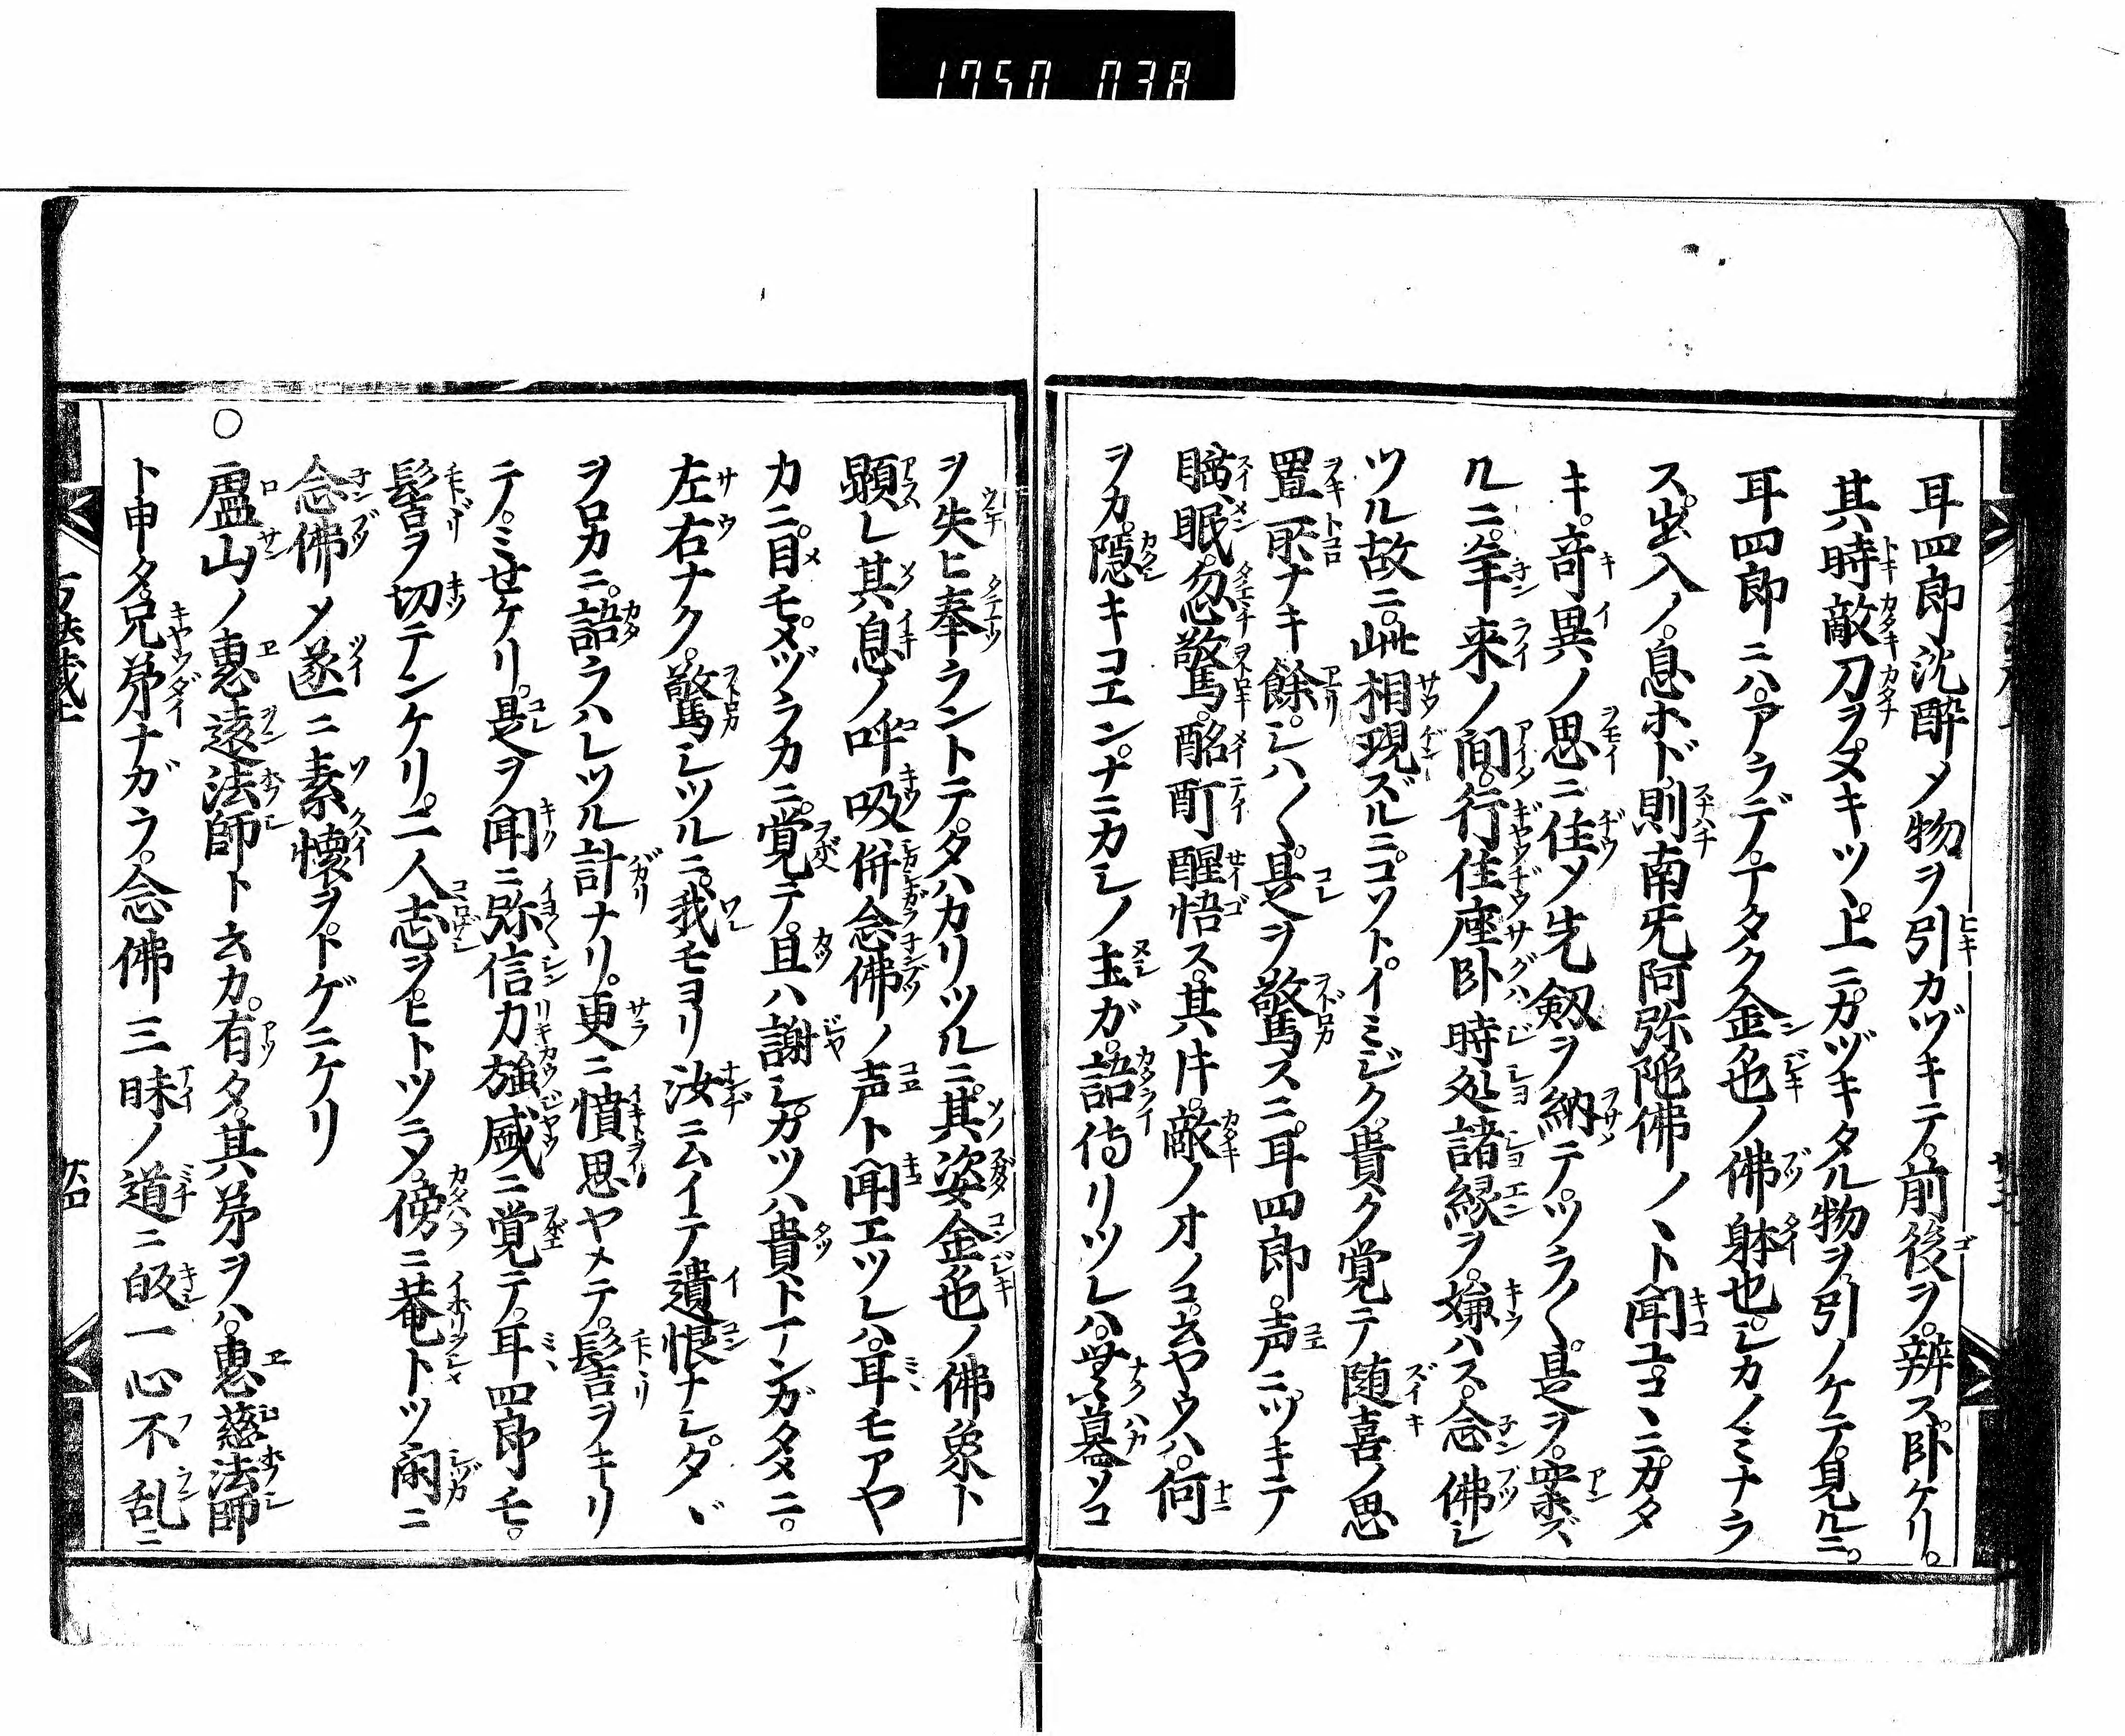 1750 038
耳四郎沈醉メ物ヲ引カヅキテ。前後ヲ。辨ス。臥ケリ。
其時敵刀ヲヌキツヽ上ニカヅキタル物ヲ。引ノケテ。見ルニ。
耳四郎ニハ。アラデ。丁タク金色ノ佛躰也。シカノミナラ
ス。出入ノ。息ホド。則南无阿弥陀佛ノヽト聞ユ。コヽニカタ
キ。竒異ノ思ニ住メ先劔ヲ納テツラ〱。是ヲ。案ズ
ルニ。年来ノ間。行住座臥時処諸縁ヲ。嫌ハス。念佛シ
ツル故ニ。此相現ズルニコソト。イミジク。貴ク覚テ随喜ノ思
置所ナキ餘。シハ〱。是ヲ驚スニ。耳四郎。声ニ。ツキテ
睡眠。忽驚。酩酊醒悟ス。其片。敵ノオノコ。云ヤウハ。何
ヲカ。隠キコエン。ナニカシノ主ガ。語侍リツレハ。無墓ソコ
ヲ失ヒ奉ラントテ。タハカリツルニ。其姿金色ノ佛象ト
顕レ其息ノ呼吸。併念佛ノ声ト聞エツレハ。耳モアヤ
カニ。目モ。メヅラカニ。覚テ。且ハ謝シ。カツハ貴ト丁ンガタメニ。
左右ナク。驚シツルニ。我モヨリ汝ニムイテ遺恨ナシ。タヾ
ヲロカニ。語ラハレツル計ナリ。更ニ憤思ヤメテ。髻ヲキリ
テノミせケリ。是ヲ聞ニ弥信力強盛ニ覚テ。耳四郎モ。
髻ヲ切テンケリ。二人志ヲ。ヒトツニメ。傍ニ菴トツ閑ニ
念佛メ遂ニ素懐ヲ。トゲニケリ
○盧山ノ惠遠法師ト云カ。有タ。其弟ヲハ。惠慈法師
ト申タ。兄弟ナガラ。念佛三昧ノ道ニ皈一心不乱ニ